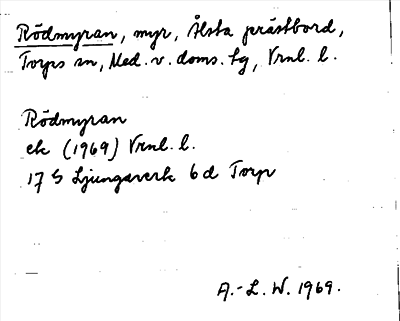 Rödmyran, myr, Ålsta prästbord,
Torps sn, Med. v. doms. tg, Vrnl. l.
Rödmyran
ek (1969) Vrnl. l.
17 G Ljungaverk 6 d Torp
A.-L. W. 1969.